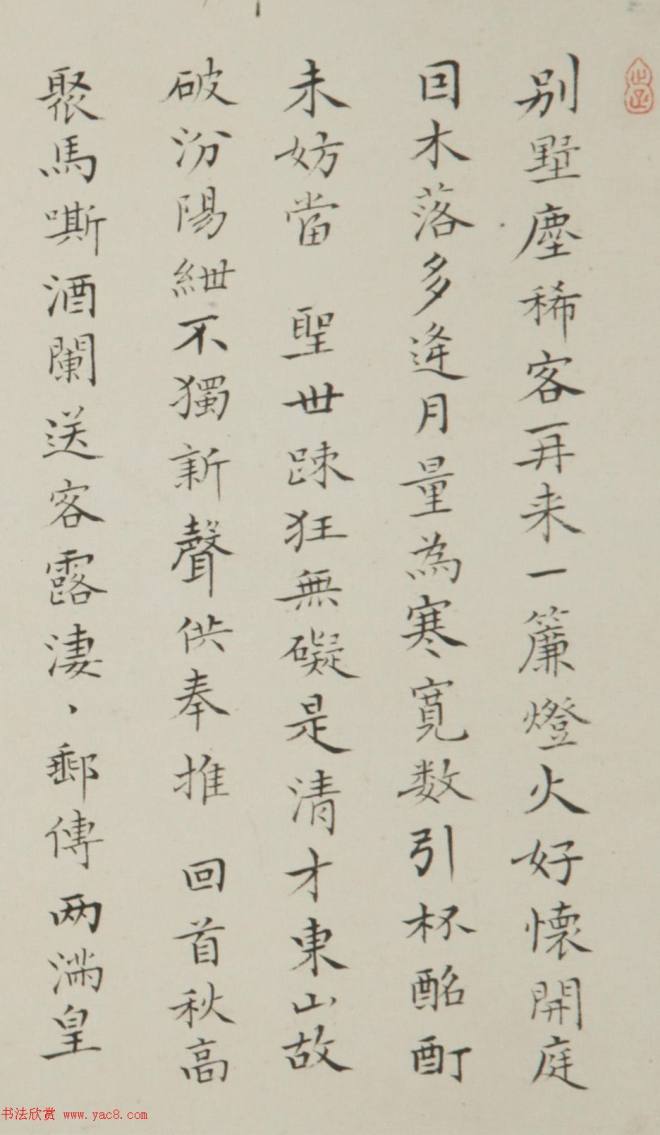 别墅塵稀客再来一簾燈火好懷開庭
因木落多逢月量為寒寬数引杯酩酊
未妨當 聖世踈狂無礙是清才東山故
破汾陽紲不獨新聲供奉推 回首秋高
聚馬嘶酒闌送客露淒、郵傳两满皇
书法欣赏 www.yac8.com